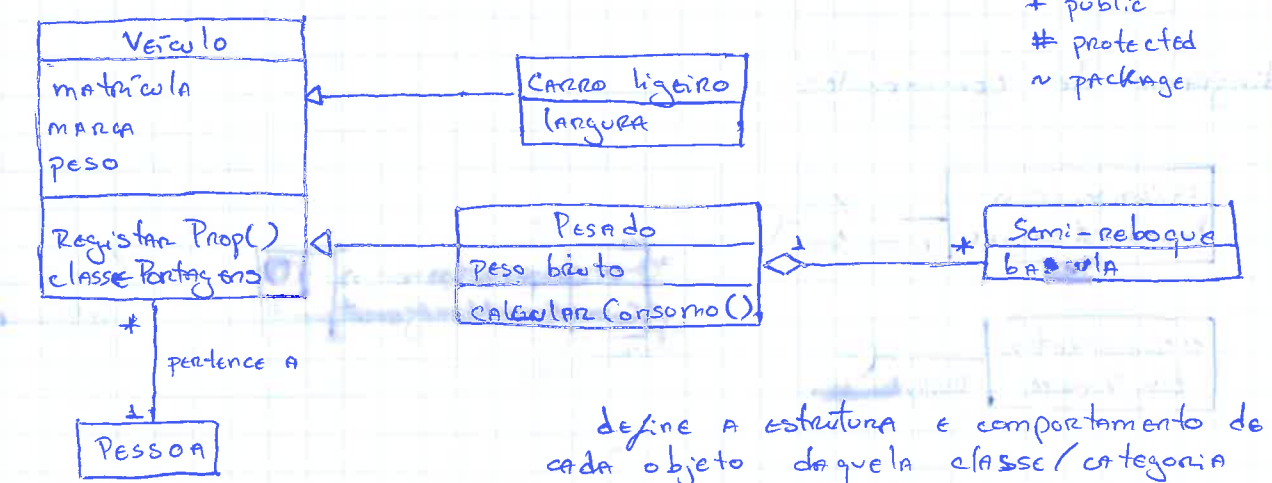 + public
# protected
~ package
Veículo
matrícula
marca
peso
Registar Prop()
classe Portagens
Carro ligeiro
largura
Pesado
peso bruto
calcular Consumo()
1
*
Semi-reboque
*
pertence a
1
Pessoa
define a estrutura e comportamento de
cada objeto daquela classe/categoria